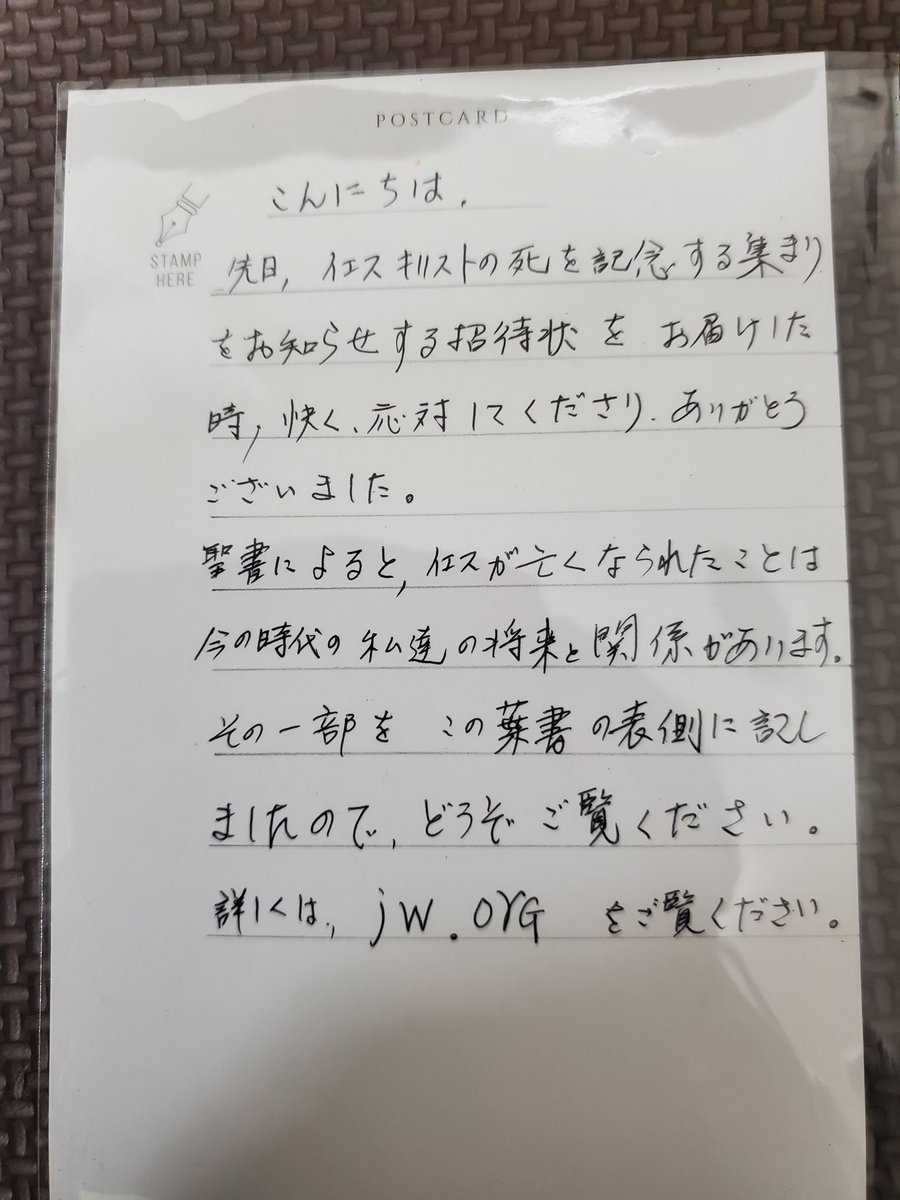 POSTCARD
STAMP
HERE
こんにちは.
先日, イエスキリストの死を記念する集まり
をお知らせする招待状を お届けした
時, 快く、応対してくださり、ありがとう
ございました。
聖書によると, イエスが亡くなられたことは
今の時代の私達の将来と関係があります。
その一部を この葉書の表側に記し
ましたので, どうぞ ご覧ください。
詳しくは, jw.orG をご覧ください。